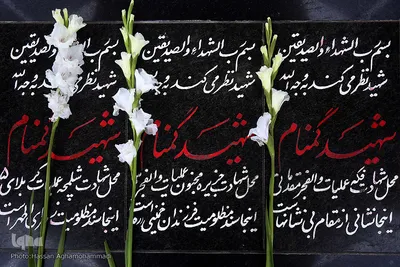 بسم رب الشهداء والصدیقین
شهید نظر می کند به وجه الله
شهید گمنام
محل شهادت فکه عملیات والفجر مقدماتی
اینجا نشانی از مقام بی نشانهاست
بسم رب الشهداء والصدیقین
شهید نظر می کند به وجه الله
شهید گمنام
محل شهادت جزیره مجنون عملیات
اینجا سند مظلومیت فرزندان خمینی
بسم رب الشهداء والصدیقین
شهید نظر می کند به وجه الله
شهید گمنام
محل شهادت شلمچه عملیات کربلای ۵
اینجا سند مظلومیت
Photo:Hassan Aghamohammadi